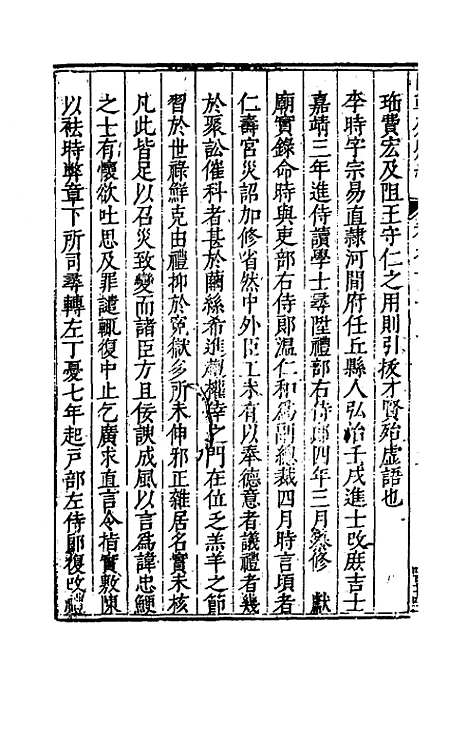 珤費宏及阻王守仁之用則引拔才賢殆虛語也
李時字宗易直隸河間府任丘縣人弘治壬戌進士改庶吉士
嘉靖三年進侍讀學士尋陞禮部右侍郎四年三月修　獻
廟實錄命時與吏部右侍郎溫仁和爲副總裁四月時言頃者
仁壽宮災詔加修省然中外臣工未有以奉德意者議禮者幾
於聚訟催科者甚於繭絲希進趨權倖之門在位乏羔羊之節
習於世祿鮮克由禮抑於寃獄多所未伸邪正雜居名實未核
凡此皆足以召災致變而諸臣方且佞諛成風以言爲諱忠鯁
之士有懷欲吐思及罪譴輒復中止乞廣求直言令指實敷陳
以袪時弊章下所司尋轉左丁憂七年起戸部左侍郎復改禮